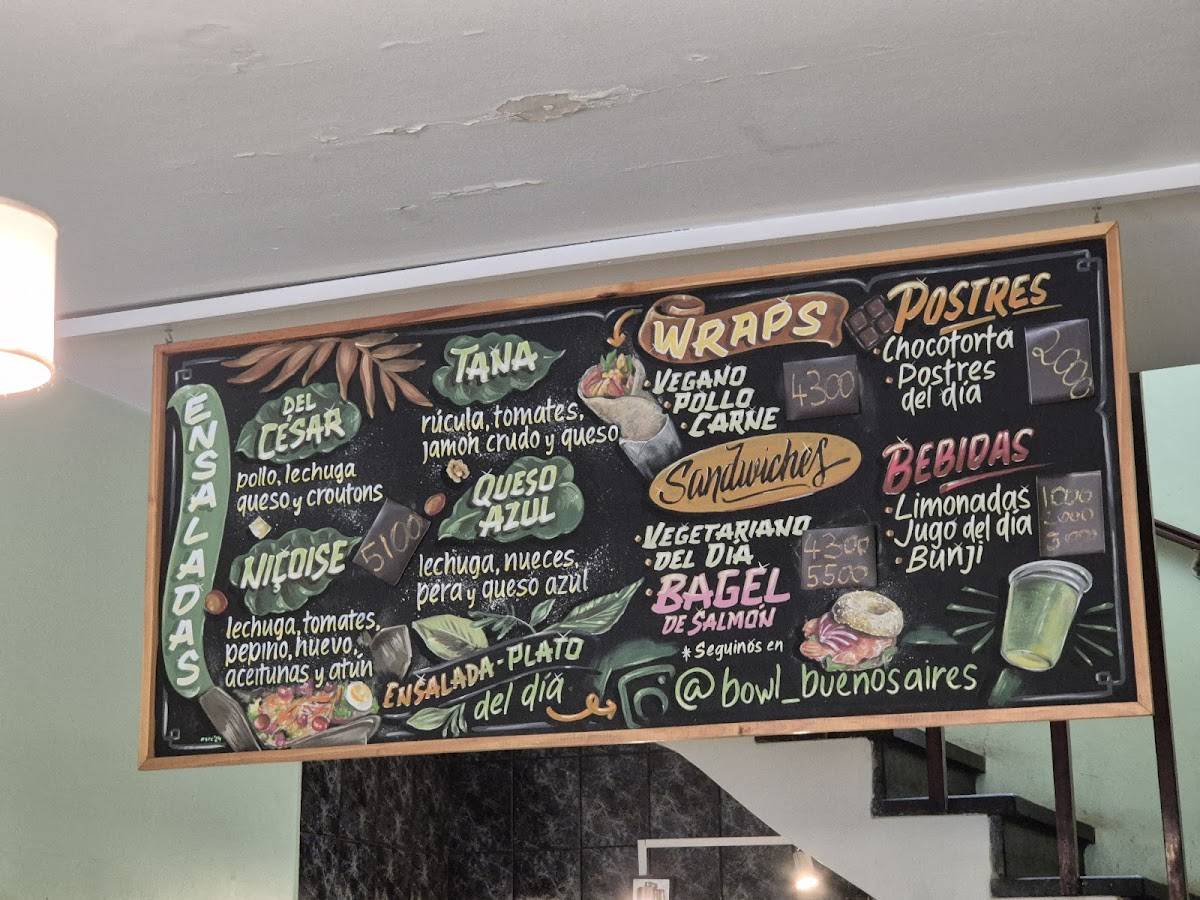 ENSALADAS
DEL
CÉSAR
pollo, lechuga
queso y croutons
NIÇOISE
lechuga, tomates,
pepino, huevo,
aceitunas y atún
5100
TANA
rúcula, tomates,
jamón crudo y queso
QUESO
AZUL
lechuga, nueces,
pera y queso azul
ENSALADA-PLATO
del día
WRAPS
• VEGANO
• POLLO
• CARNE
4300
Sandwiches
• VEGETARIANO
• DEL DIA
• BAGEL
DE SALMÓN
4300
5500
* Seguinos en
@bowl_buenosaires
POSTRES
• Chocotorta
• Postres
del día
2000
BEBIDAS
• Limonadas
• Jugo del día
• Bunji
1000
2000